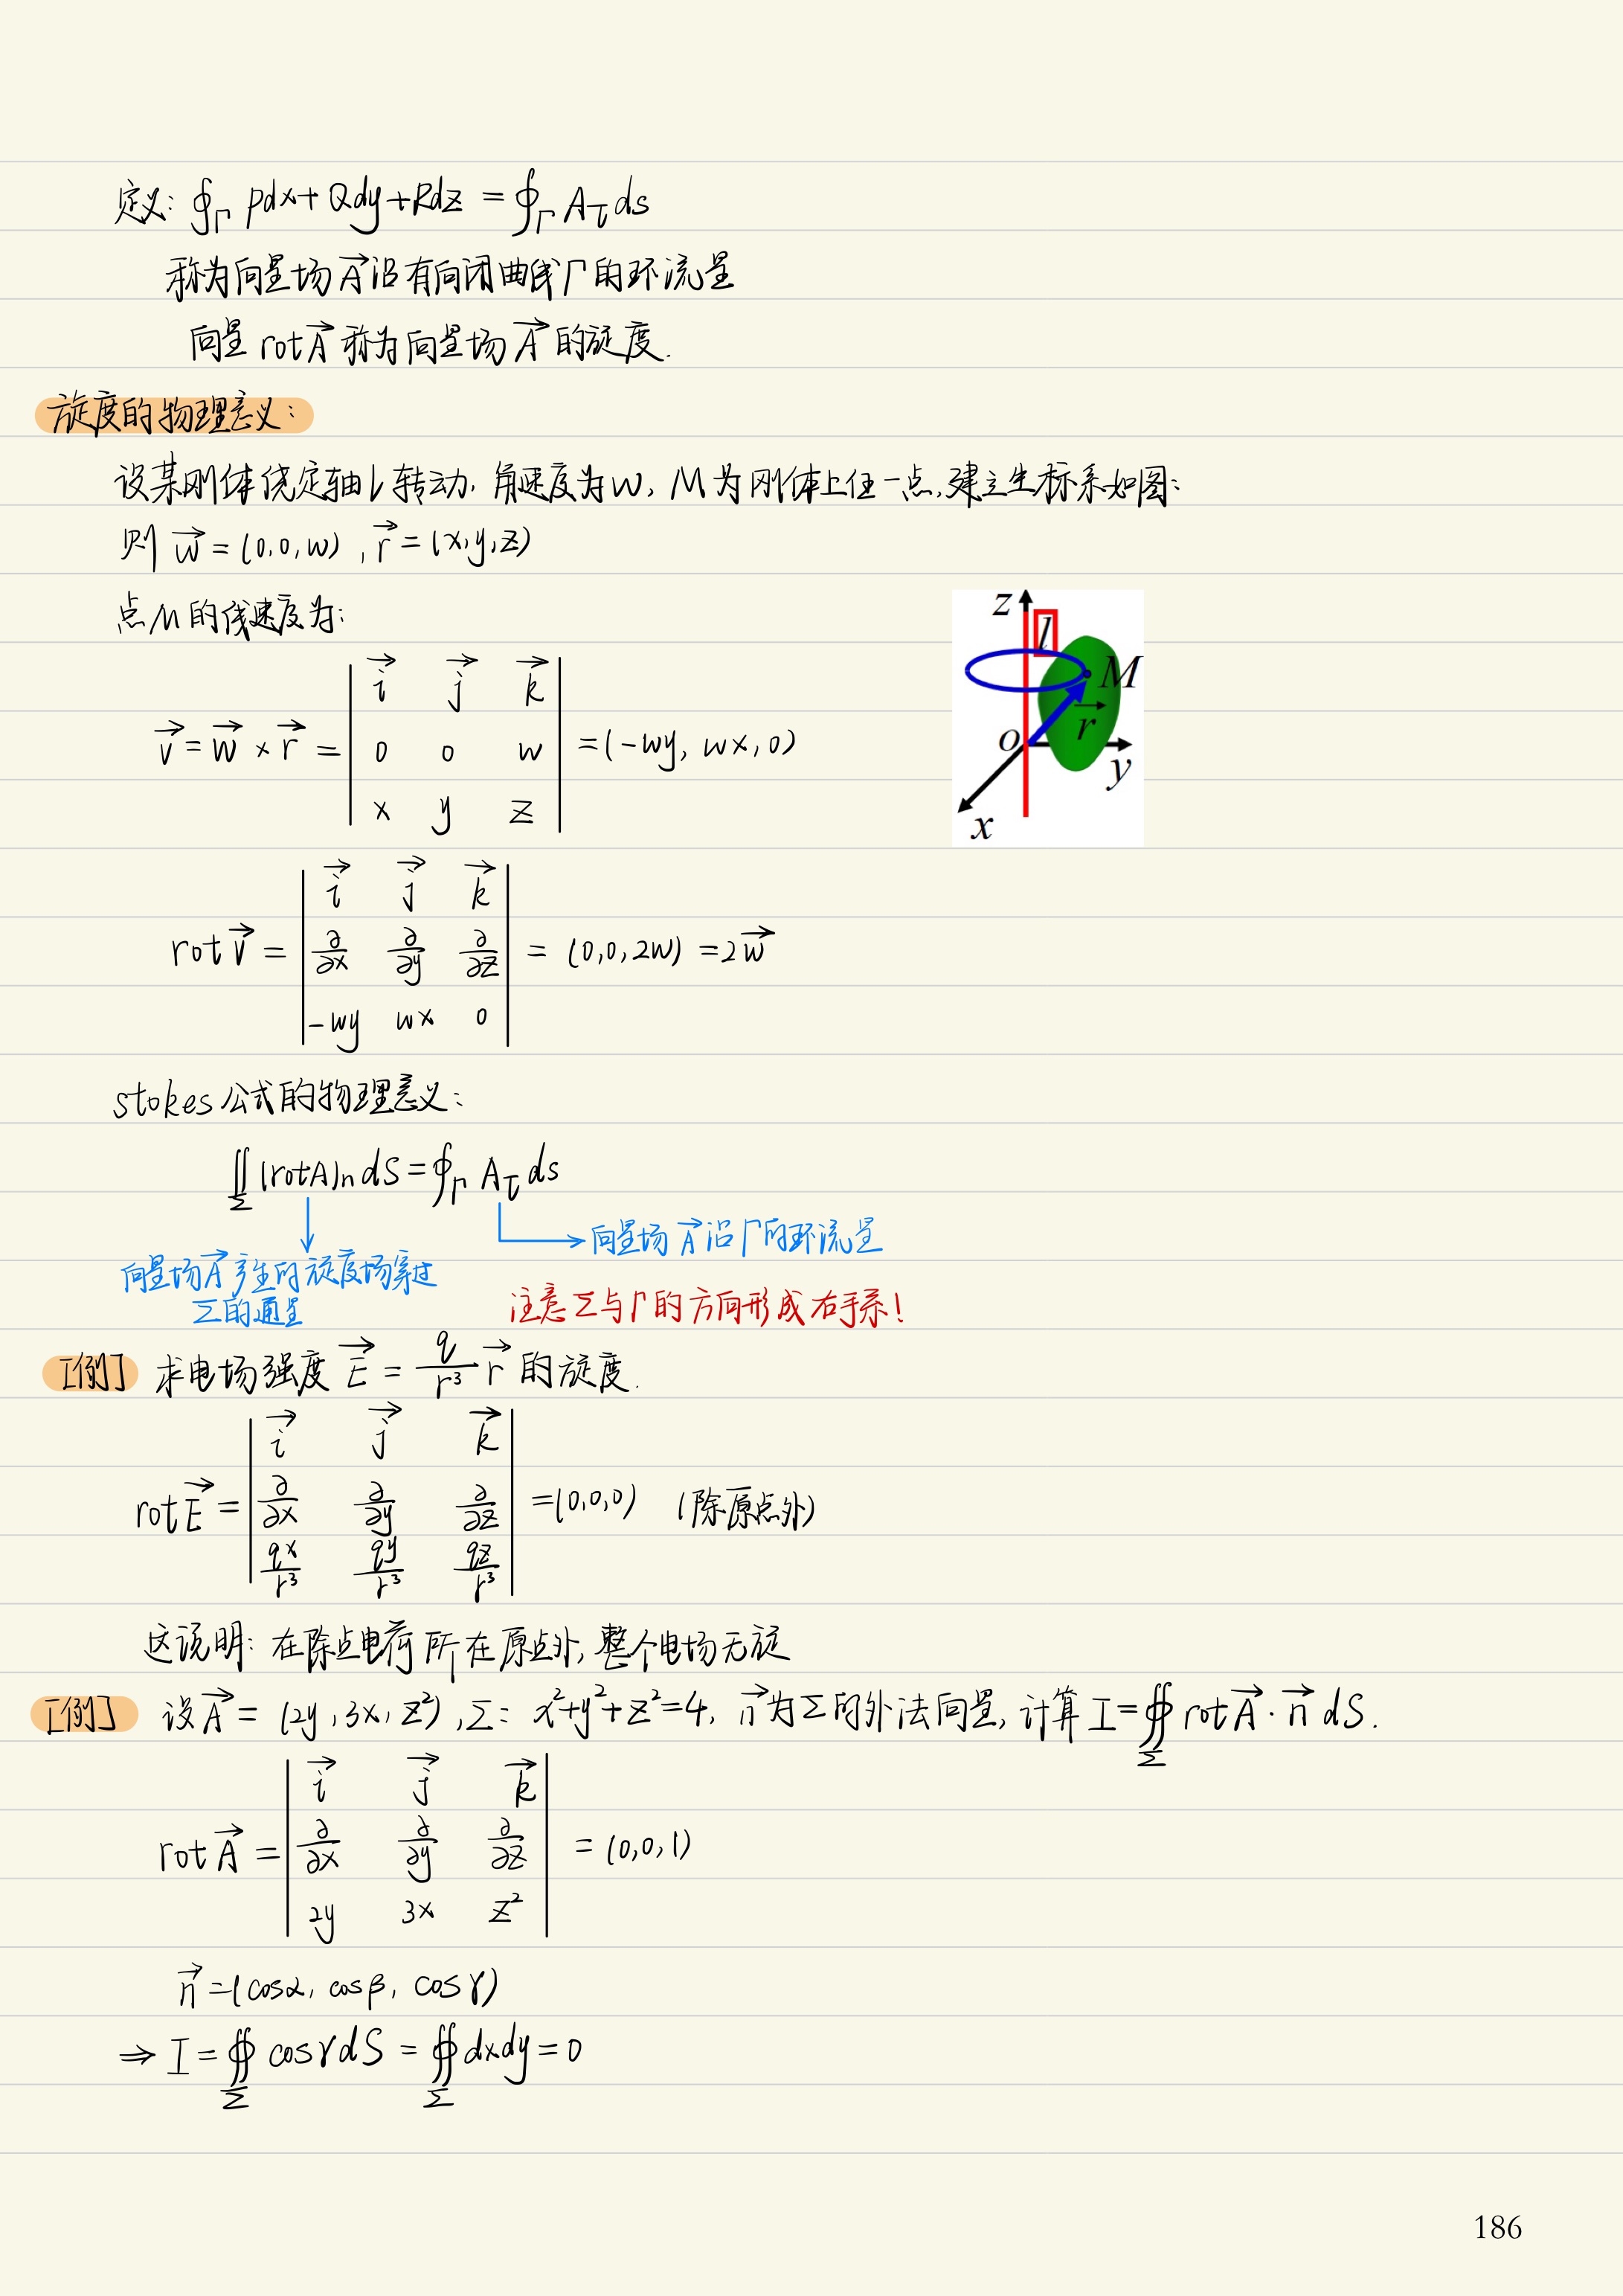 定义: ∮_Γ Pdx+Qdy+Rdz = ∮_Γ A_τ ds
称为向量场 A⃗ 沿有向闭曲线Γ的环流量
向量 rotA⃗ 称为向量场 A⃗ 的旋度.
旋度的物理意义:
设某刚体绕定轴l转动, 角速度为w, M为刚体上任一点,建立坐标系如图:
则 w⃗ = (0,0,w) , r⃗ = (x,y,z)
点M的线速度为:
v⃗ = w⃗ × r⃗ = | i⃗ j⃗ k⃗ ; 0 0 w ; x y z | = (-wy, wx, 0)
z
l
M
r⃗
o
y
x
rot v⃗ = | i⃗ j⃗ k⃗ ; ∂/∂x ∂/∂y ∂/∂z ; -wy wx 0 | = (0,0,2w) = 2w⃗
stokes公式的物理意义:
∬_Σ (rotA)_n dS = ∮_Γ A_τ ds
向量场 A⃗ 沿Γ的环流量
向量场A⃗产生的旋度场穿过
Σ的通量
注意Σ与Γ的方向形成右手系!
[例] 求电场强度 E⃗ = q/r³ r⃗ 的旋度.
rot E⃗ = | i⃗ j⃗ k⃗ ; ∂/∂x ∂/∂y ∂/∂z ; qx/r³ qy/r³ qz/r³ | = (0,0,0) (除原点外)
这说明: 在除点电荷所在原点外, 整个电场无旋
[例] 设A⃗ = (2y, 3x, z²), Σ: x²+y²+z²=4, n⃗为Σ的外法向量, 计算 I=∯_Σ rotA⃗ · n⃗ dS.
rot A⃗ = | i⃗ j⃗ k⃗ ; ∂/∂x ∂/∂y ∂/∂z ; 2y 3x z² | = (0,0,1)
n⃗ = (cosα, cosβ, cosγ)
⇒ I = ∯_Σ cosγdS = ∯_Σ dxdy = 0
186